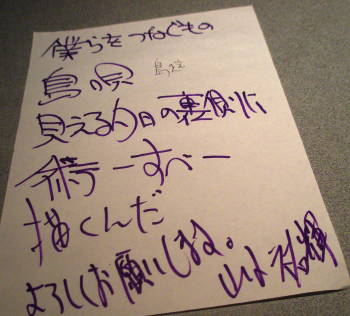 僕らをつなぐもの
鳥唄 鳥唄
見える今日の裏側に
術ーすべー
描くんだ
よろしくお願いします。
山下祐輝